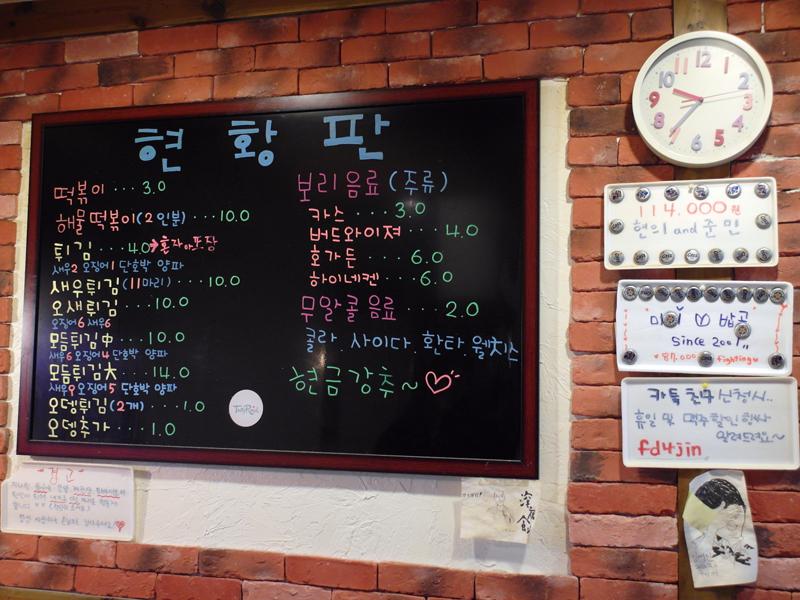 현황판
떡볶이 ··· 3.0
해물떡볶이(2인분) ··· 10.0
튀김 ··· 4.0 → 혼자 or 포장
새우2 오징어1 단호박 양파
새우튀김(11마리) ··· 10.0
오새튀김 ··· 10.0
오징어6 새우6
모듬튀김 中 ··· 10.0
새우6 오징어4 단호박 양파
모듬튀김 大 ··· 14.0
새우9 오징어5 단호박 양파
오뎅튀김(2개) ··· 1.0
오뎅추가 ··· 1.0
보리음료(주류)
카스 ··· 3.0
버드와이져 ··· 4.0
호가든 ··· 6.0
하이네켄 ··· 6.0
무알콜음료 ··· 2.0
콜라 사이다 환타 웰치스
현금강추~♡
12 1 2 3 4 5 6 7 8 9 10 11
114,000원
현의 and 준민
밥곰
Since 2001
87,000 fighting
카톡 친구 신청시..
휴일 및 맥주할인행사
알려드려요~
fd4jin
"경고"